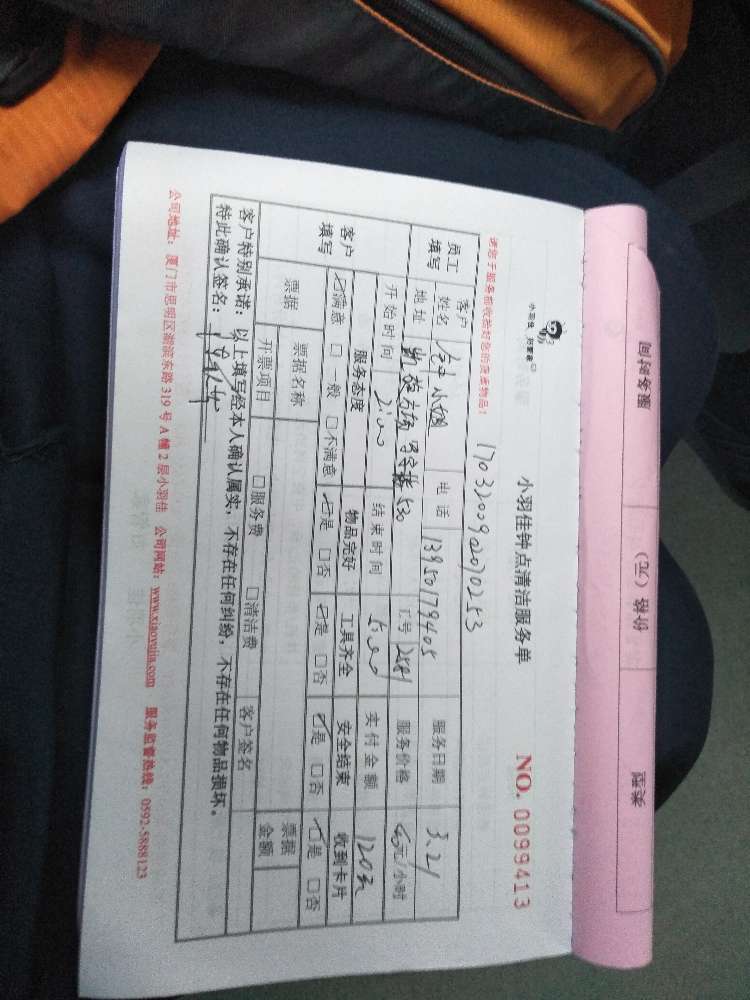 小羽佳 好管家
小羽佳钟点清洁服务单
NO. 0099413
请您于服务前收拾好您的贵重物品！
1703200902070253
员工填写 客户姓名 小姐 电话 13950179405 服务日期 3.21
地址 凯旋广场 530 工号 2581 服务价格 元/小时
开始时间 2:00 结束时间 5:00 实付金额 120元
客户填写 服务态度 物品完好 工具齐全 安全结束 收到卡片
☑满意 □一般 □不满意 ☑是 □否 ☑是 □否 ☑是 □否 ☑是 □否
票据 票据名称 □服务费 □清洁费 客户签名 票据金额
开票项目
客户特别承诺：以上填写经本人确认属实，不存在任何纠纷，不存在任何物品损坏。
特此确认签名：
公司地址：厦门市思明区湖滨东路319号A幢2层小羽佳 公司网站：www.xiaoyujia.com 服务监督热线：0592-5888123
服务时间
份数（元）